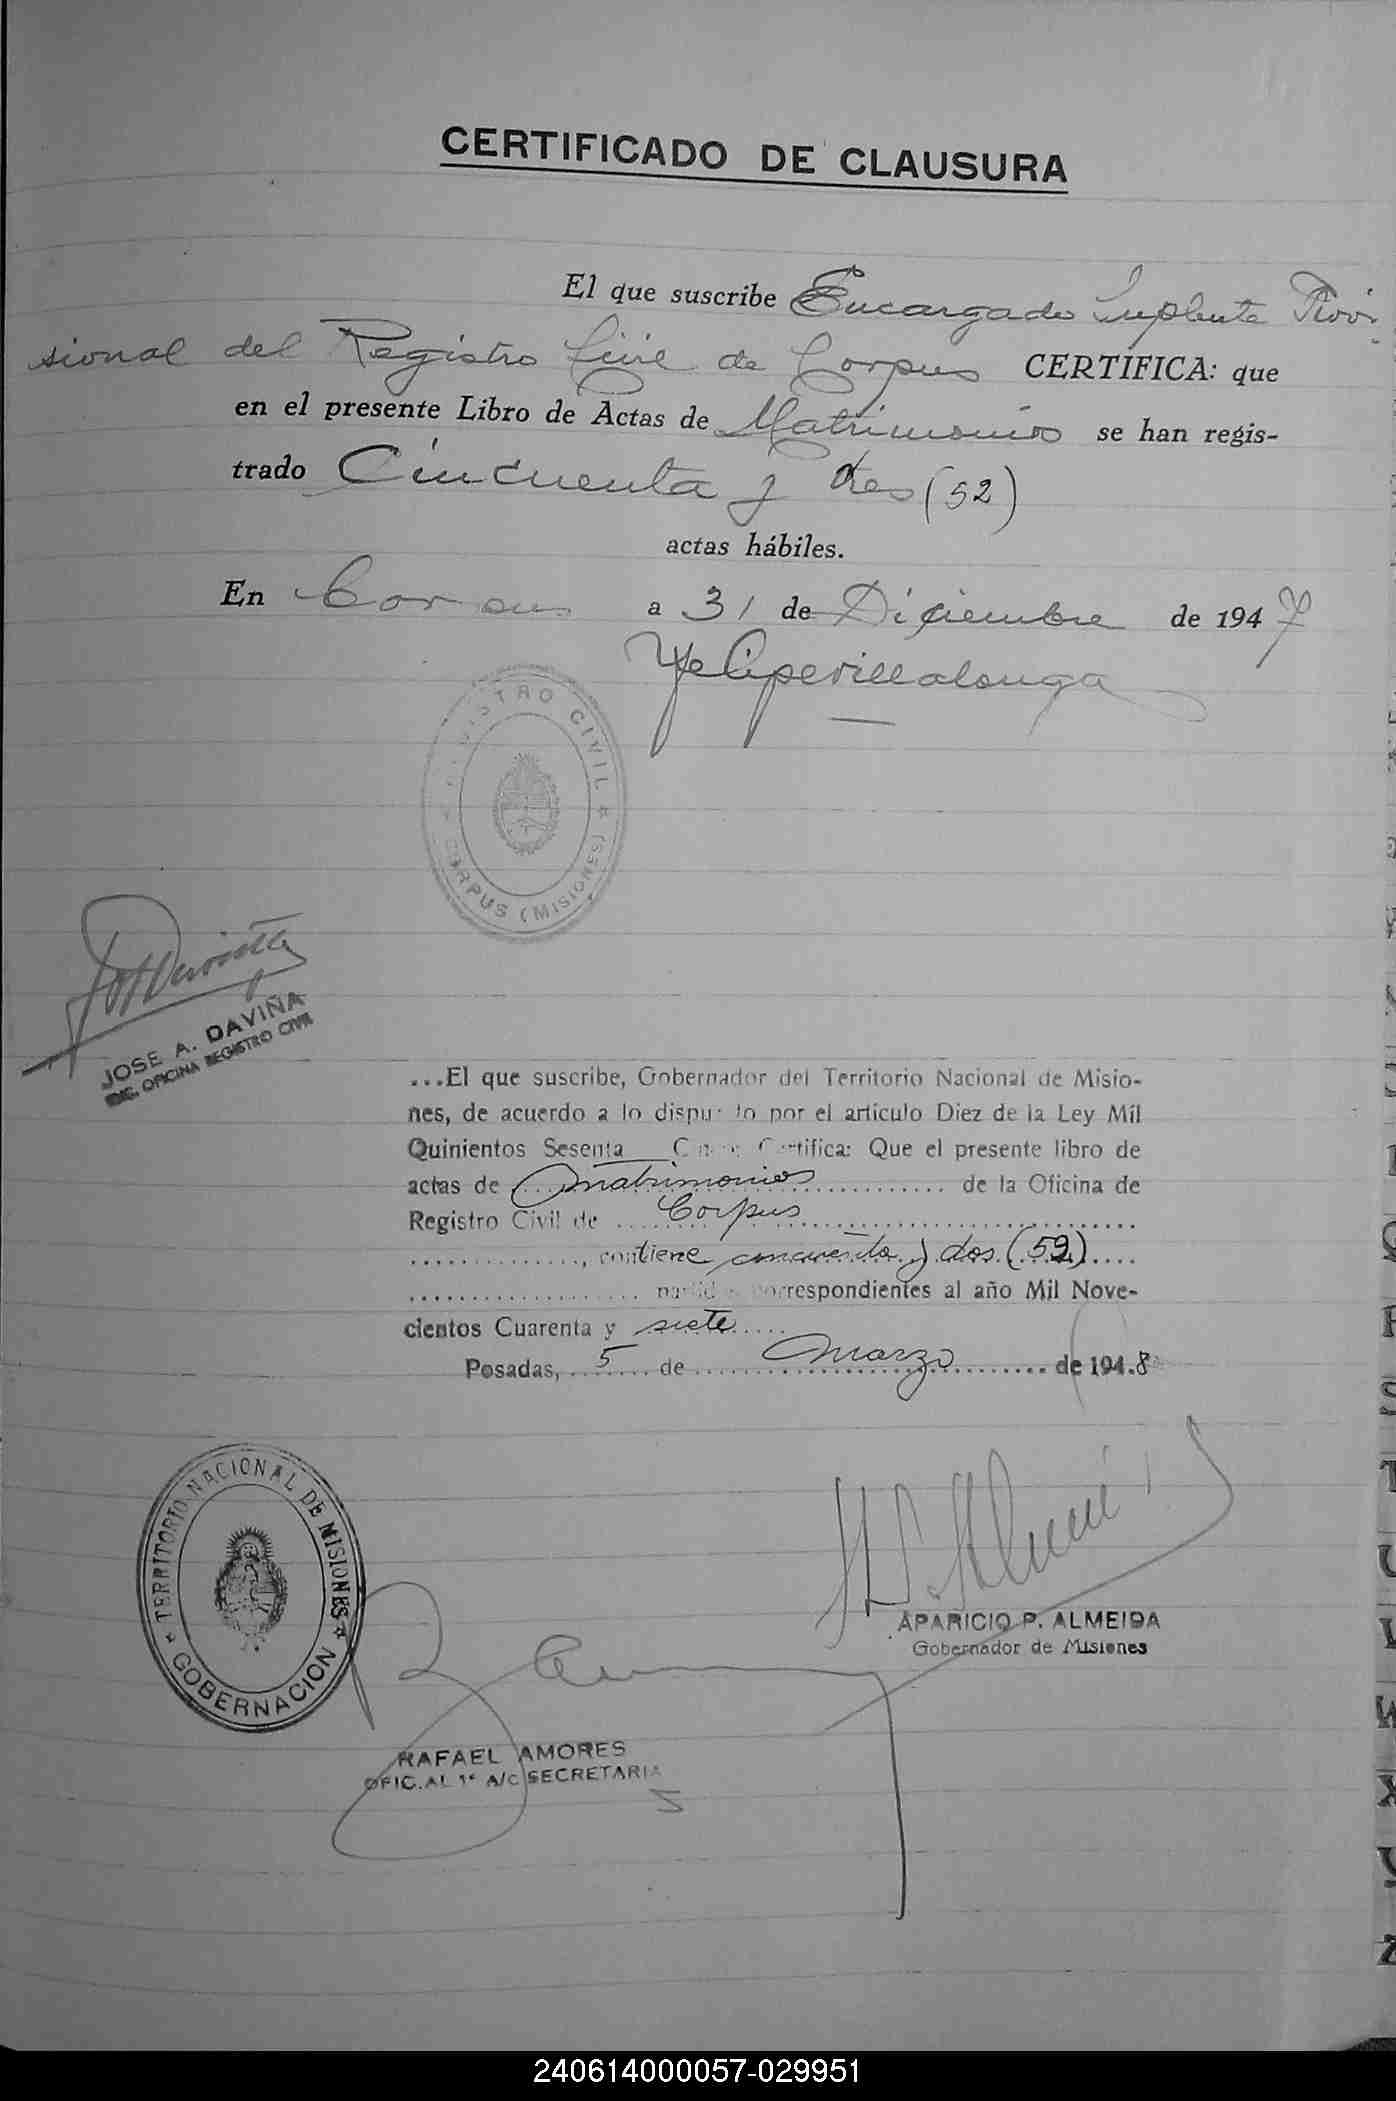 CERTIFICADO DE CLAUSURA
El que suscribe Encargado Suplente Provi-
sional del Registro Civil de Corpus CERTIFICA: que
en el presente Libro de Actas de Matrimonios se han regis-
trado Cincuenta y dos (52)
actas hábiles.
En Corpus a 31 de Diciembre de 1947
Felipe Villalonga
REGISTRO CIVIL
CORPUS (MISIONES)
JOSE A. DAVIÑA
OFICINA REGISTRO CIVIL
...El que suscribe, Gobernador del Territorio Nacional de Misio-
nes, de acuerdo a lo dispuesto por el artículo Diez de la Ley Mil
Quinientos Sesenta Certifica: Que el presente libro de
actas de Matrimonios de la Oficina de
Registro Civil de Corpus
, contiene cincuenta y dos (52)
partidas correspondientes al año Mil Nove-
cientos Cuarenta y siete
Posadas, 5 de Marzo de 1948
TERRITORIO NACIONAL DE MISIONES
GOBERNACION
APARICIO P. ALMEIDA
Gobernador de Misiones
RAFAEL AMORES
OFICIAL 1º A/C SECRETARIA
240614000057-029951